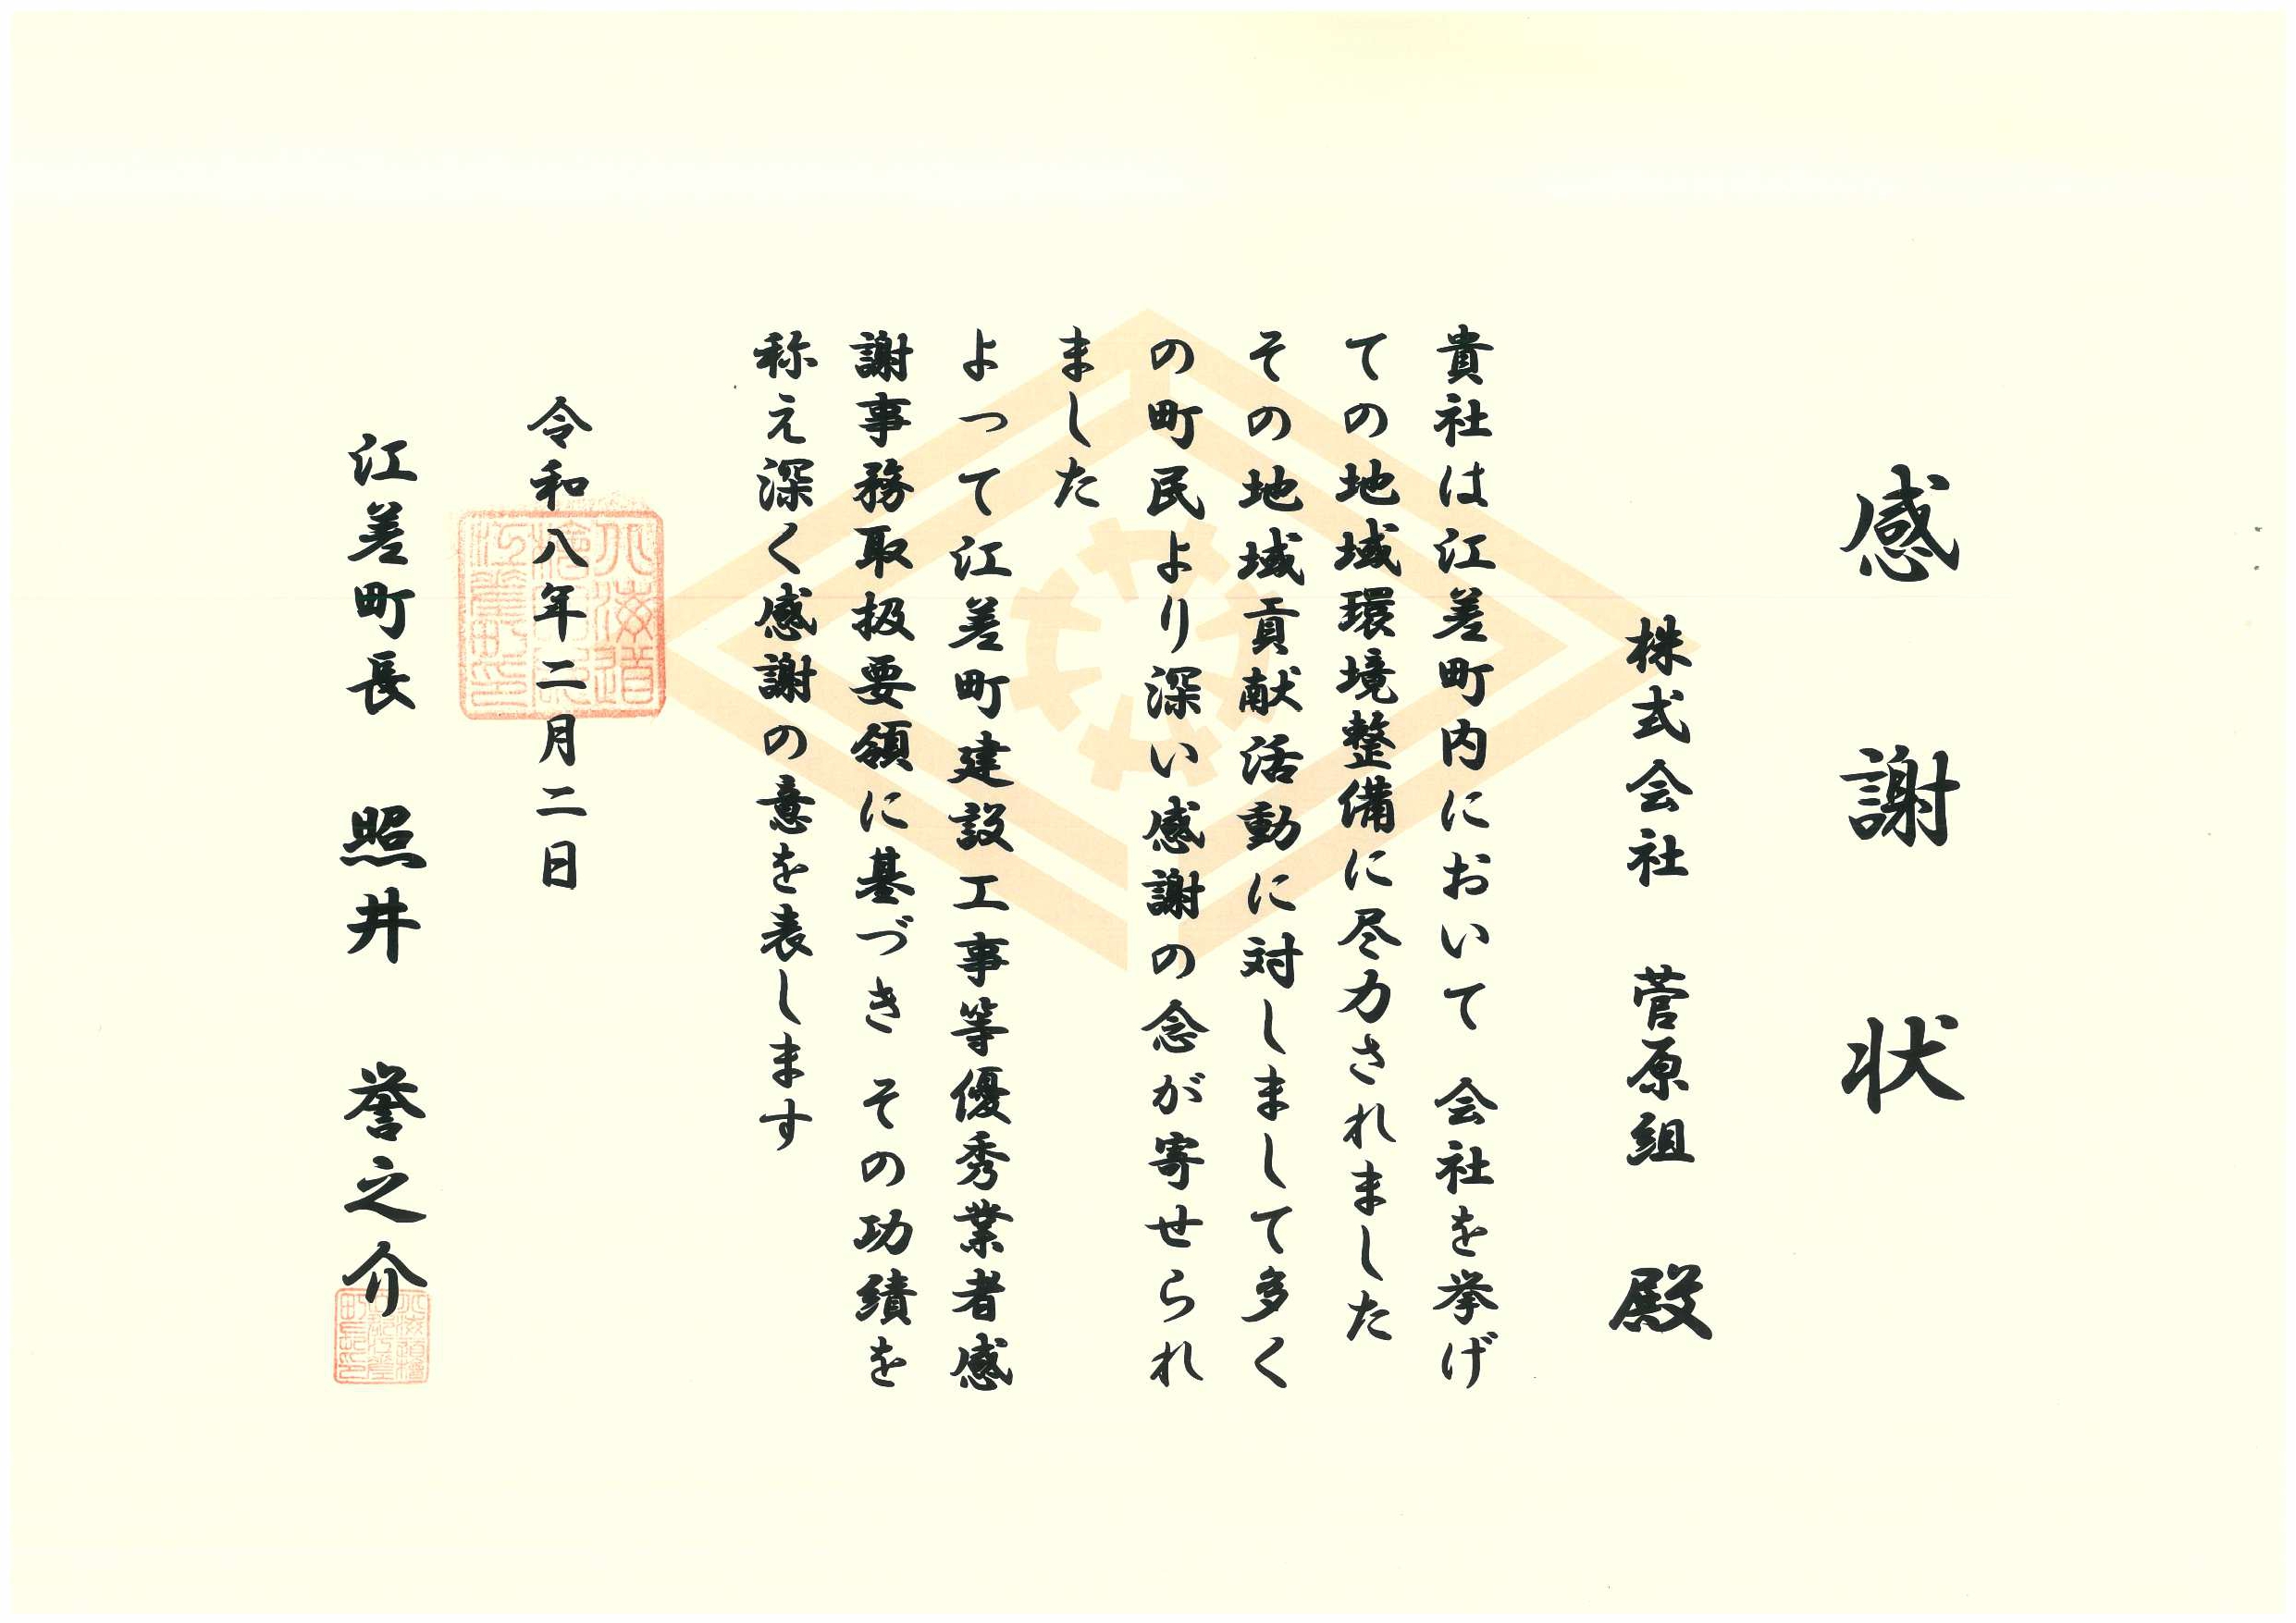 感謝状
株式会社 菅原組 殿
貴社は江差町内において 会社を挙げ
ての地域環境整備に尽力されました
その地域貢献活動に対しまして多く
の町民より深い感謝の念が寄せられ
ました
よって江差町建設工事等優秀業者感
謝事務取扱要領に基づき その功績を
称え深く感謝の意を表します
令和八年二月二日
江差町長 照井 誉之介